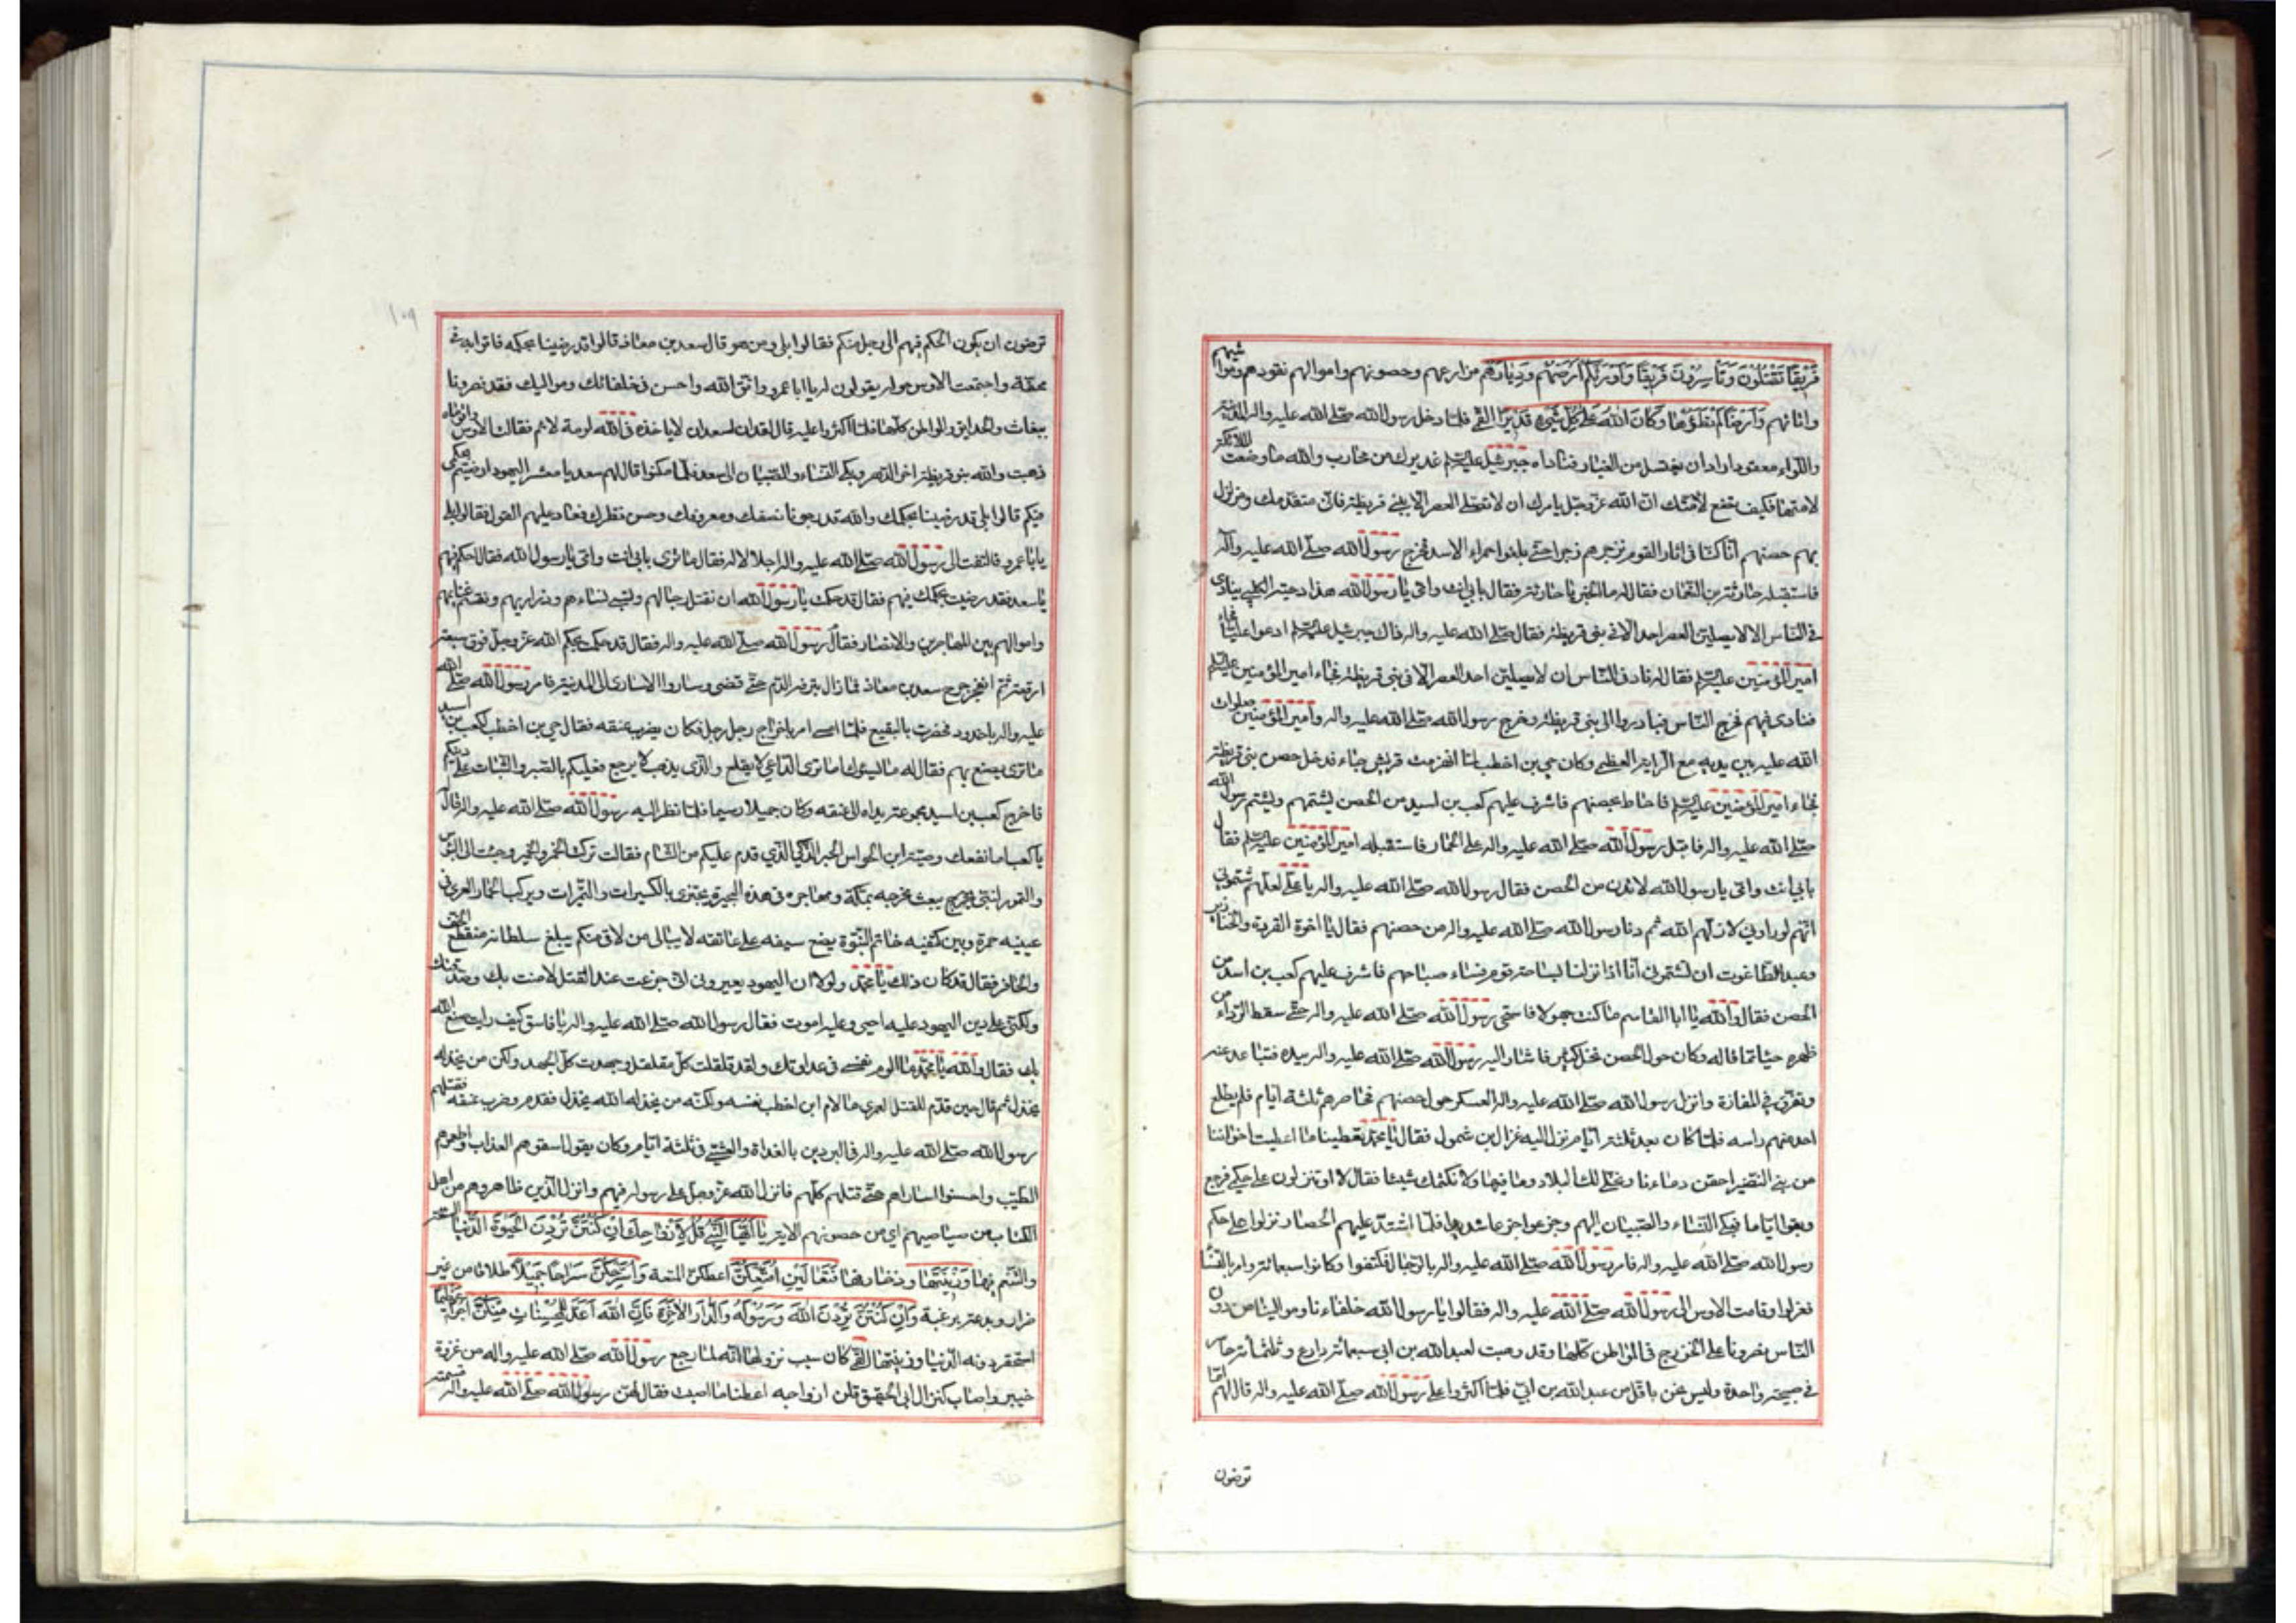 فَرِيقًا تَقْتُلُونَ وَتَأْسِرُونَ فَرِيقًا وَأَوْرَثَكُمْ أَرْضَهُمْ وَدِيَارَهُمْ مزارعهم وحصونهم واموالهم نقودهم ومواشيهم
واثاثهم وَأَرْضًا لَمْ تَطَؤُهَا وَكَانَ اللهُ عَلَى كُلِّ شَيْءٍ قَدِيرًا القمي فلما دخل رسول الله صلى الله عليه واله المدينة
واللواء معقود اراد ان يغتسل من الغبار فناداه جبرئيل عليه السلم عذيرك من محارب والله ما وضعت الملائكة
لامتها فكيف تضع لامتك ان الله عز وجل يامرك ان لا تصلي العصر الا ببني قريظة فاني متقدمك ومزلزل
بهم حصنهم انا كنا في اثار القوم نزجرهم زجرا حتى بلغوا حمراء الاسد فخرج رسول الله صلى الله عليه واله
فاستقبله حارثة بن النعمان فقال له ما الخبر يا حارثة فقال بابي انت وامي يا رسول الله هذا دحية الكلبي ينادي
في الناس الا لا يصلين العصر احد الا في بني قريظة فقال صلى الله عليه واله ذاك جبرئيل عليه السلم ادعوا عليا فجاء
امير المؤمنين عليه السلم فقال له ناد في الناس ان لا يصلين احد العصر الا في بني قريظة فجاء امير المؤمنين عليه السلم
فنادى فيهم فخرج الناس فبادروا الى بني قريظة وخرج رسول الله صلى الله عليه واله وامير المؤمنين صلوات
الله عليه بين يديه مع الراية العظمى وكان حي بن اخطب لما انهزمت قريش جاء فدخل حصن بني قريظة
فجاء امير المؤمنين عليه السلم فاحاط بحصنهم فاشرف عليهم كعب بن اسيد من الحصن يشتمهم ويشتم رسول الله
صلى الله عليه واله فاقبل رسول الله صلى الله عليه واله على الحمار فاستقبله امير المؤمنين عليه السلم فقال
بابي انت وامي يا رسول الله لا تدن من الحصن فقال رسول الله صلى الله عليه واله يا علي لعلهم شتموني
انهم لو راوني لاذلهم الله ثم دنا رسول الله صلى الله عليه واله من حصنهم فقال يا اخوة القردة والخنازير
وعبدة الطاغوت ان تشتموني انا اذا نزلنا بساحة قوم فساء صباحهم فاشرف عليهم كعب بن اسد من
الحصن فقال والله يا ابا القاسم ما كنت جهولا فاستحى رسول الله صلى الله عليه واله حتى سقط الرداء من
ظهره حياء مما قاله وكان حول الحصن نخل كثير فاشار اليه رسول الله صلى الله عليه واله بيده فتباعد عنه
وتفرق في المفازة وانزل رسول الله صلى الله عليه واله العسكر حول حصنهم فحاصرهم ثلثة ايام فلم يطلع
احد منهم راسه فلما كان بعد ثلثة ايام نزل اليه غزال بن شمول فقال يا محمد تعطينا ما اعطيت اخواننا
من بني النضير احقن دماءنا ونخلي لك البلاد وما فيها ولا نكتمك شيئا فقال لا او تنزلون على حكمي فرجع
وبقوا اياما فبكى النساء والصبيان اليهم وجزعوا جزعا شديدا فلما اشتد عليهم الحصار نزلوا على حكم
رسول الله صلى الله عليه واله فامر رسول الله صلى الله عليه واله بالرجال فكتفوا وكانوا سبعمائة وامر بالنساء
فعزلوا وقامت الاوس الى رسول الله صلى الله عليه واله فقالوا يا رسول الله حلفاءنا وموالينا من دون
الناس نصرونا على الخزرج في المواطن كلها وقد وهبت لعبد الله بن ابي سبعمائة دارع وثلثمائة حاسر
في صبيحة واحدة وليس نحن باقل من عبد الله بن ابي فلما اكثروا على رسول الله صلى الله عليه واله قال لهم اما
ترضون
ترضون ان يكون الحكم فيهم الى رجل منكم فقالوا بلى ومن هو قال سعد بن معاذ قالوا قد رضينا بحكمه فاتوا به في
محفة واجتمعت الاوس حوله يقولون له يا ابا عمرو اتق الله واحسن في حلفائك ومواليك فقد نصرونا
ببغاث والحدائق والمواطن كلها فلما اكثروا عليه قال لقد ان لسعد ان لا ياخذه في الله لومة لائم فقالت الاوس واقوماه
ذهبت والله بنو قريظة اخر الدهر وبكى النساء والصبيان الى سعد فلما سكتوا قال لهم سعد يا معشر اليهود ارضيتم بحكمي
فيكم قالوا بلى قد رضينا بحكمك والله قد رجونا نصفك ومعروفك وحسن نظرك فعاد عليهم القول فقالوا بلى
يا ابا عمرو فالتفت الى رسول الله صلى الله عليه واله اجلالا له فقال ما ترى بابي انت وامي يا رسول الله فقال احكم فيهم
يا سعد فقد رضيت بحكمك فيهم فقال قد حكمت يا رسول الله ان تقتل رجالهم وتسبى نساءهم وذراريهم وتقسم غنايمهم
واموالهم بين المهاجرين والانصار فقام رسول الله صلى الله عليه واله فقال قد حكمت بحكم الله عز وجل فوق سبعة
ارقعة ثم انفجر جرح سعد بن معاذ فما زال ينزف الدم حتى قضى وساروا الاسارى الى المدينة فامر رسول الله صلى الله
عليه واله باخدود فحفرت بالبقيع فلما امسى امر باخراج رجل رجل فكان يضرب عنقه فقال حي بن اخطب لكعب بن اسيد
ما ترى يصنع بهم فقال له ما يسوئك اما ترى الداعي لا يقلع والذي يذهب لا يرجع فعليكم بالصبر والثبات على دينكم
فاخرج كعب بن اسيد مجموعة يداه الى عنقه وكان جميلا وسيما فلما نظر اليه رسول الله صلى الله عليه واله قال له
يا كعب اما نفعك وصية ابن الحواس الحبر الذكي الذي قدم عليكم من الشام فقالت تركت الخمر والخمير وجئت الى البؤس
والتمور لنبي يبعث مخرجه بمكة ومهاجره في هذه البحيرة يجتزي بالكسيرات والتميرات ويركب الحمار العري في
عينيه حمرة وبين كتفيه خاتم النبوة يضع سيفه على عاتقه لا يبالي من لاقى منكم يبلغ سلطانه منقطع الخف
والحافر فقال قد كان ذلك يا محمد ولولا ان اليهود يعيروني اني جزعت عند القتل لامنت بك وصدقتك
ولكني على دين اليهود عليه احيى وعليه اموت فقال رسول الله صلى الله عليه واله يا فاسق كيف رايت صنع الله
بك فقال والله يا محمد ما الوم نفسي في عداوتك ولقد قلقلت كل مقلقل وجهدت كل الجهد ولكن من يخذل الله
يخذل ثم قال حين قدم للقتل لعمري ما لام ابن اخطب نفسه ولكنه من يخذل الله يخذل فقدم وضرب عنقه فقتلهم
رسول الله صلى الله عليه واله في البردين بالغداة والعشي في ثلثة ايام وكان يقول اسقوهم العذب واطعموهم
الطيب واحسنوا اسارهم حتى قتلهم كلهم فانزل الله عز وجل على رسوله فيهم وانزل الذين ظاهروهم من اهل
الكتاب من صياصيهم اي من حصونهم الاية يَا أَيُّهَا النَّبِيُّ قُلْ لِأَزْوَاجِكَ إِنْ كُنْتُنَّ تُرِدْنَ الْحَيٰوةَ الدُّنْيَا السعة
والتنعم فيها وَزِينَتَهَا وزخارفها فَتَعَالَيْنَ أُمَتِّعْكُنَّ اعطكن المتعة وَأُسَرِّحْكُنَّ سَرَاحًا جَمِيلًا طلاقا من غير
ضرار وبدعة برغبة وَإِنْ كُنْتُنَّ تُرِدْنَ اللهَ وَرَسُولَهُ وَالدَّارَ الْآخِرَةَ فَإِنَّ اللهَ أَعَدَّ لِلْمُحْسِنَاتِ مِنْكُنَّ أَجْرًا عَظِيمًا
استحقر دونه الدنيا وزينتها القمي كان سبب نزولها انه لما رجع رسول الله صلى الله عليه واله من غزوة
خيبر واصاب كنز ال ابي الحقيق قلن ازواجه اعطنا ما اصبت فقال لهن رسول الله صلى الله عليه واله قسمته